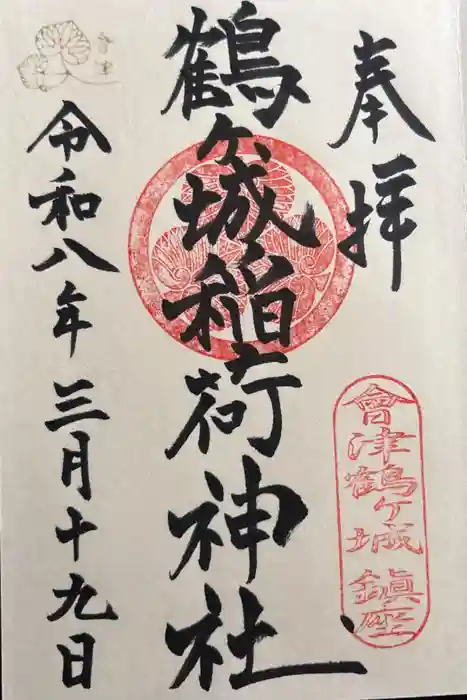 奉拝
會津鶴ヶ城 鎮座
鶴ヶ城稲荷神社
令和八年 三月十九日
會津